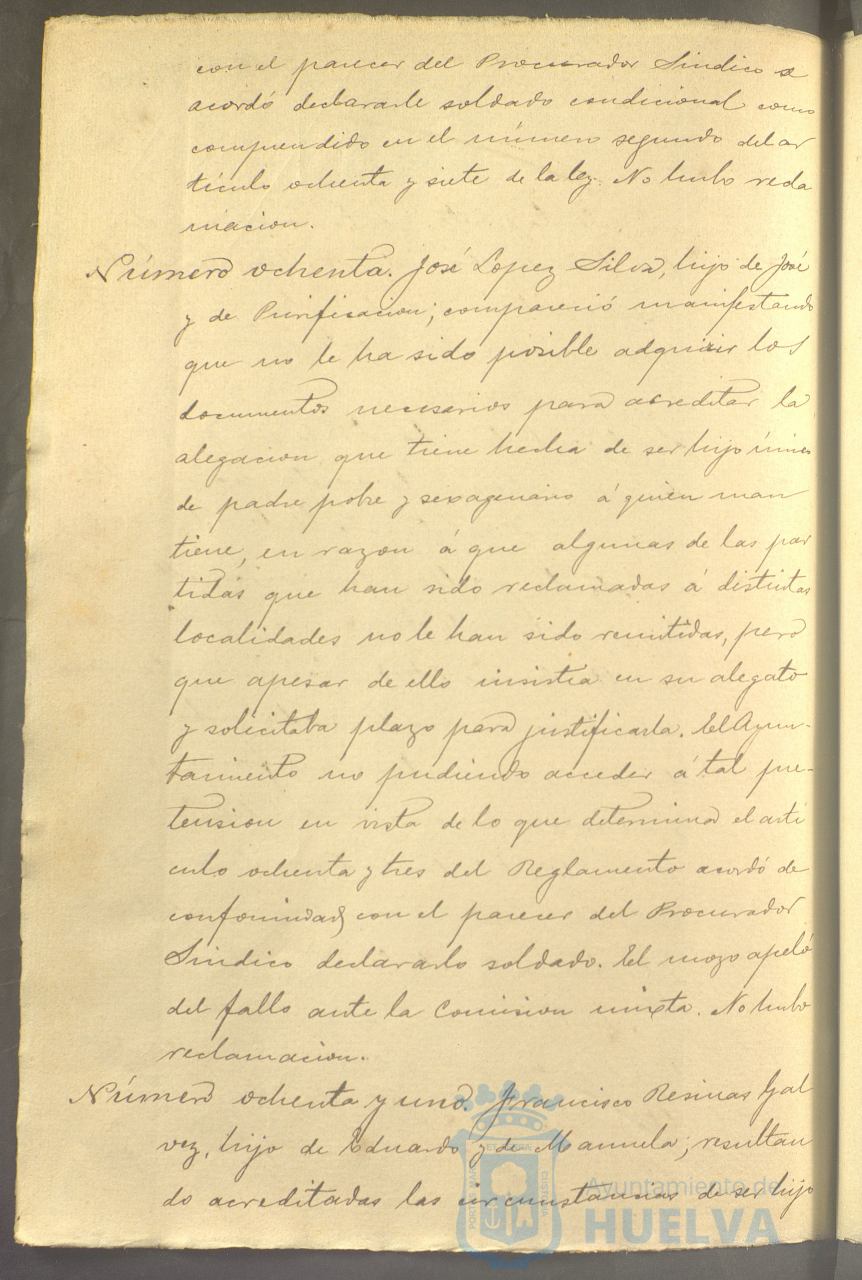 con el parecer del Procurador Sindico se
acordó declararle soldado condicional como
comprendido en el número segundo del ar
tículo ochenta y siete de la ley. No hubo recla
macion.
Número ochenta. José Lopez Silva, hijo de José
y de Purificacion; compareció manifestando
que no le ha sido posible adquirir los
documentos necesarios para acreditar la
alegacion que tiene hecha de ser hijo único
de padre pobre y sexagenario á quien man
tiene, en razon á que algunas de las par
tidas que han sido reclamadas á distintas
localidades no le han sido remitidas, pero
que apesar de ello insistia en su alegato
y solicitaba plazo para justificarla. El Ayun-
tamiento no pudiendo acceder á tal pre-
tension en vista de lo que determina el artí
culo ochenta y tres del Reglamento acordó de
conformidad con el parecer del Procurador
Sindico declararlo soldado. El mozo apeló
del fallo ante la Comision mixta. No hubo
reclamacion.
Número ochenta y uno. Francisco Resinas Gal
vez, hijo de Eduardo y de Manuela; resultan
do acreditadas las circunstancias de ser hijo
Ayuntamiento de
HUELVA